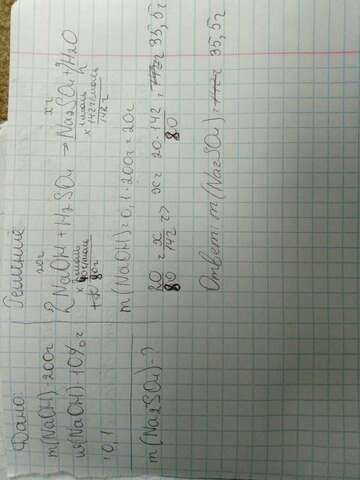 Дано:
m(NaOH)=200г
ω(NaOH)=10% =
=0,1
m(Na₂SO₄)-?
Решение
20г xг
2NaOH + H₂SO₄ → Na₂SO₄ + 2H₂O
1моль
142г/моль
80г 142г
m(NaOH)=0,1·200г=20г
20/80 = x/142 => x = 20·142/80 = 35,5г
Ответ: m(Na₂SO₄)= 35,5г